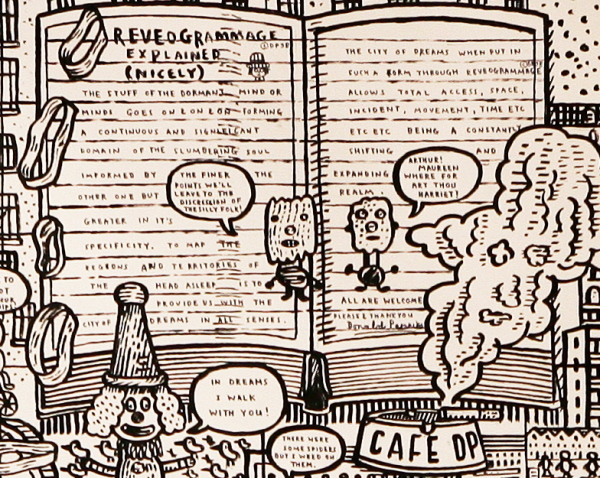 REVEOGRAMMAGE
EXPLAINED
(NICELY)
THE STUFF OF THE DORMANT MIND OR
MINDS GOES ON FORMING
A CONTINUOUS AND SIGNIFICANT
DOMAIN OF THE SLUMBERING SOUL
INFORMED BY THE
OTHER ONE BUT
GREATER IN IT'S
SPECIFICITY. TO MAP THE
REGIONS AND TERRITORIES OF
THE HEAD ASLEEP IS TO
PROVIDE US WITH THE
CITY OF DREAMS IN ALL SENSES.
THE FINER
POINTS WE'LL
LEAVE TO THE
DISCRESSION OF
THE SILLY FOLK!
THE CITY OF DREAMS WHEN PUT IN
SUCH A FORM THROUGH REVEOGRAMMAGE
ALLOWS TOTAL ACCESS, SPACE,
INCIDENT, MOVEMENT, TIME ETC
ETC ETC BEING A CONSTANTLY
SHIFTING AND
EXPANDING
REALM.
ARTHUR!
MAUREEN!
WHERE FOR
ART THOU
HARRIET!
ALL ARE WELCOME
PLEASE & THANK YOU
Donald
IN DREAMS
I WALK
WITH YOU!
THERE WERE
SOME SPIDERS
BUT I WEED ON
THEM.
CAFÉ DP
TO